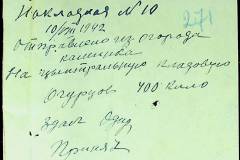 Накладная № 10
271
10/VIII 1942
Отправлено из огорода
калинка
На центральную кладовую
Огурцов 400 кило
Здал
Принял